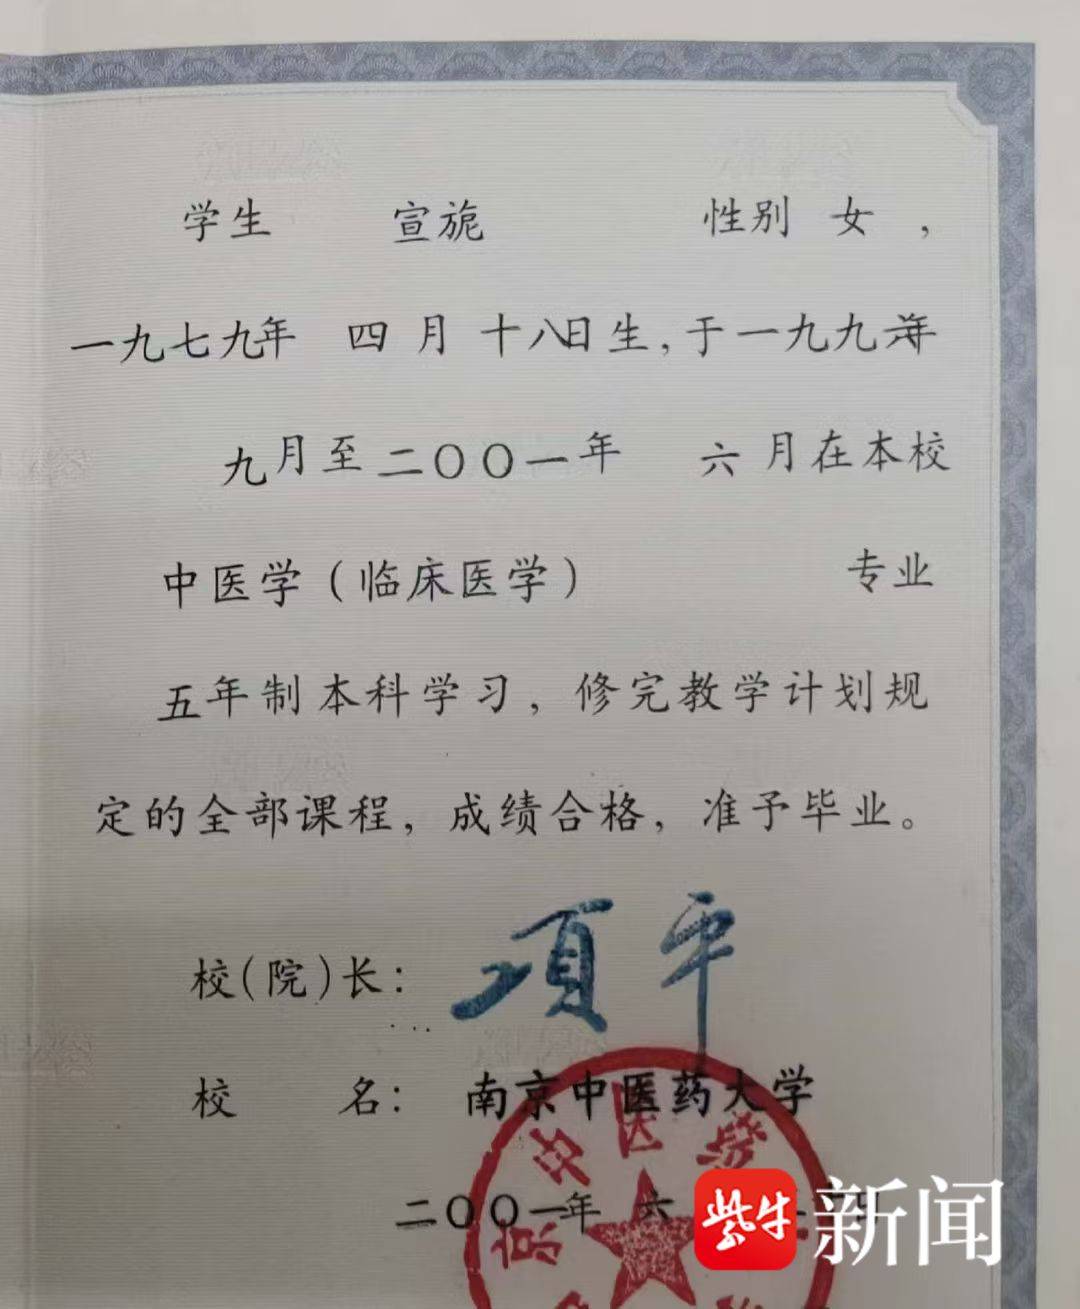 学生 宣旎 性别 女 ，
一九七九年 四 月 十八日生，于一九九六年
九月至二〇〇一年 六 月在本校
中医学（临床医学） 专业
五年制本科学习，修完教学计划规
定的全部课程，成绩合格，准予毕业。
校(院)长： 项平
校 名： 南京中医药大学
二〇〇一年 六
京中医药
紫牛新闻